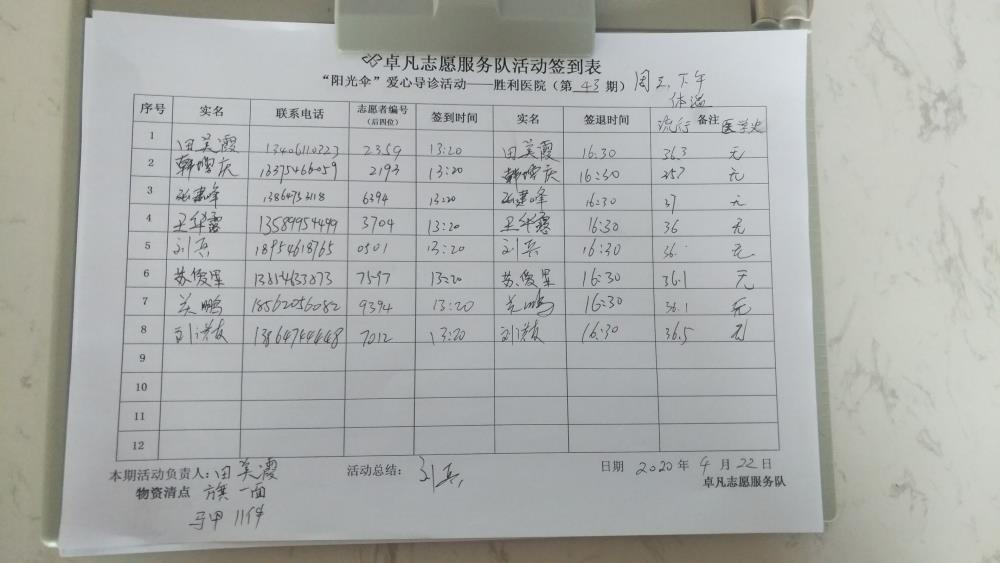 卓凡志愿服务队活动签到表
“阳光伞”爱心导诊活动——胜利医院（第 43 期） 周三下午
体温
序号 实名 联系电话 志愿者编号（后四位） 签到时间 实名 签退时间 流行 备注 医学史
1 田美霞 13406110323 2359 13:20 田美霞 16:30 36.3 无
2 韩增庆 13375466059 2193 13:20 韩增庆 16:30 35.7 无
3 张建峰 6394 13:20 张建峰 16:30 37 无
4 王华露 13589954499 3704 13:20 王华露 16:30 36 无
5 刘兵 18954618765 0501 13:20 刘兵 16:30 36 无
6 苏俊星 7597 13:20 苏俊星 16:30 36.1 无
7 关鹏 18562056082 9394 13:20 关鹏 16:30 36.1 无
8 13864744448 7012 13:20 16:30 36.5 无
9
10
11
12
本期活动负责人：田美霞 活动总结： 刘兵 日期 2020 年 4 月 22 日
物资清点 旗一面 卓凡志愿服务队
马甲 11件